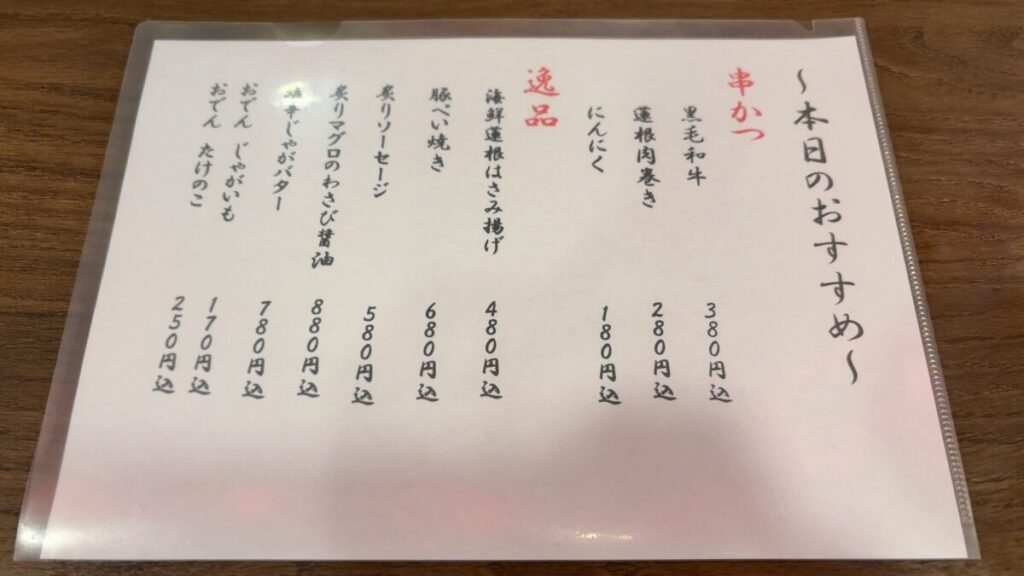 〜本日のおすすめ〜
串かつ
黒毛和牛 380円込
蓮根肉巻き 280円込
にんにく 180円込
逸品
海鮮蓮根はさみ揚げ 480円込
豚ぺい焼き 680円込
炙りソーセージ 580円込
炙りマグロのわさび醤油 880円込
辛じゃがバター 780円込
おでん じゃがいも 170円込
おでん たけのこ 250円込